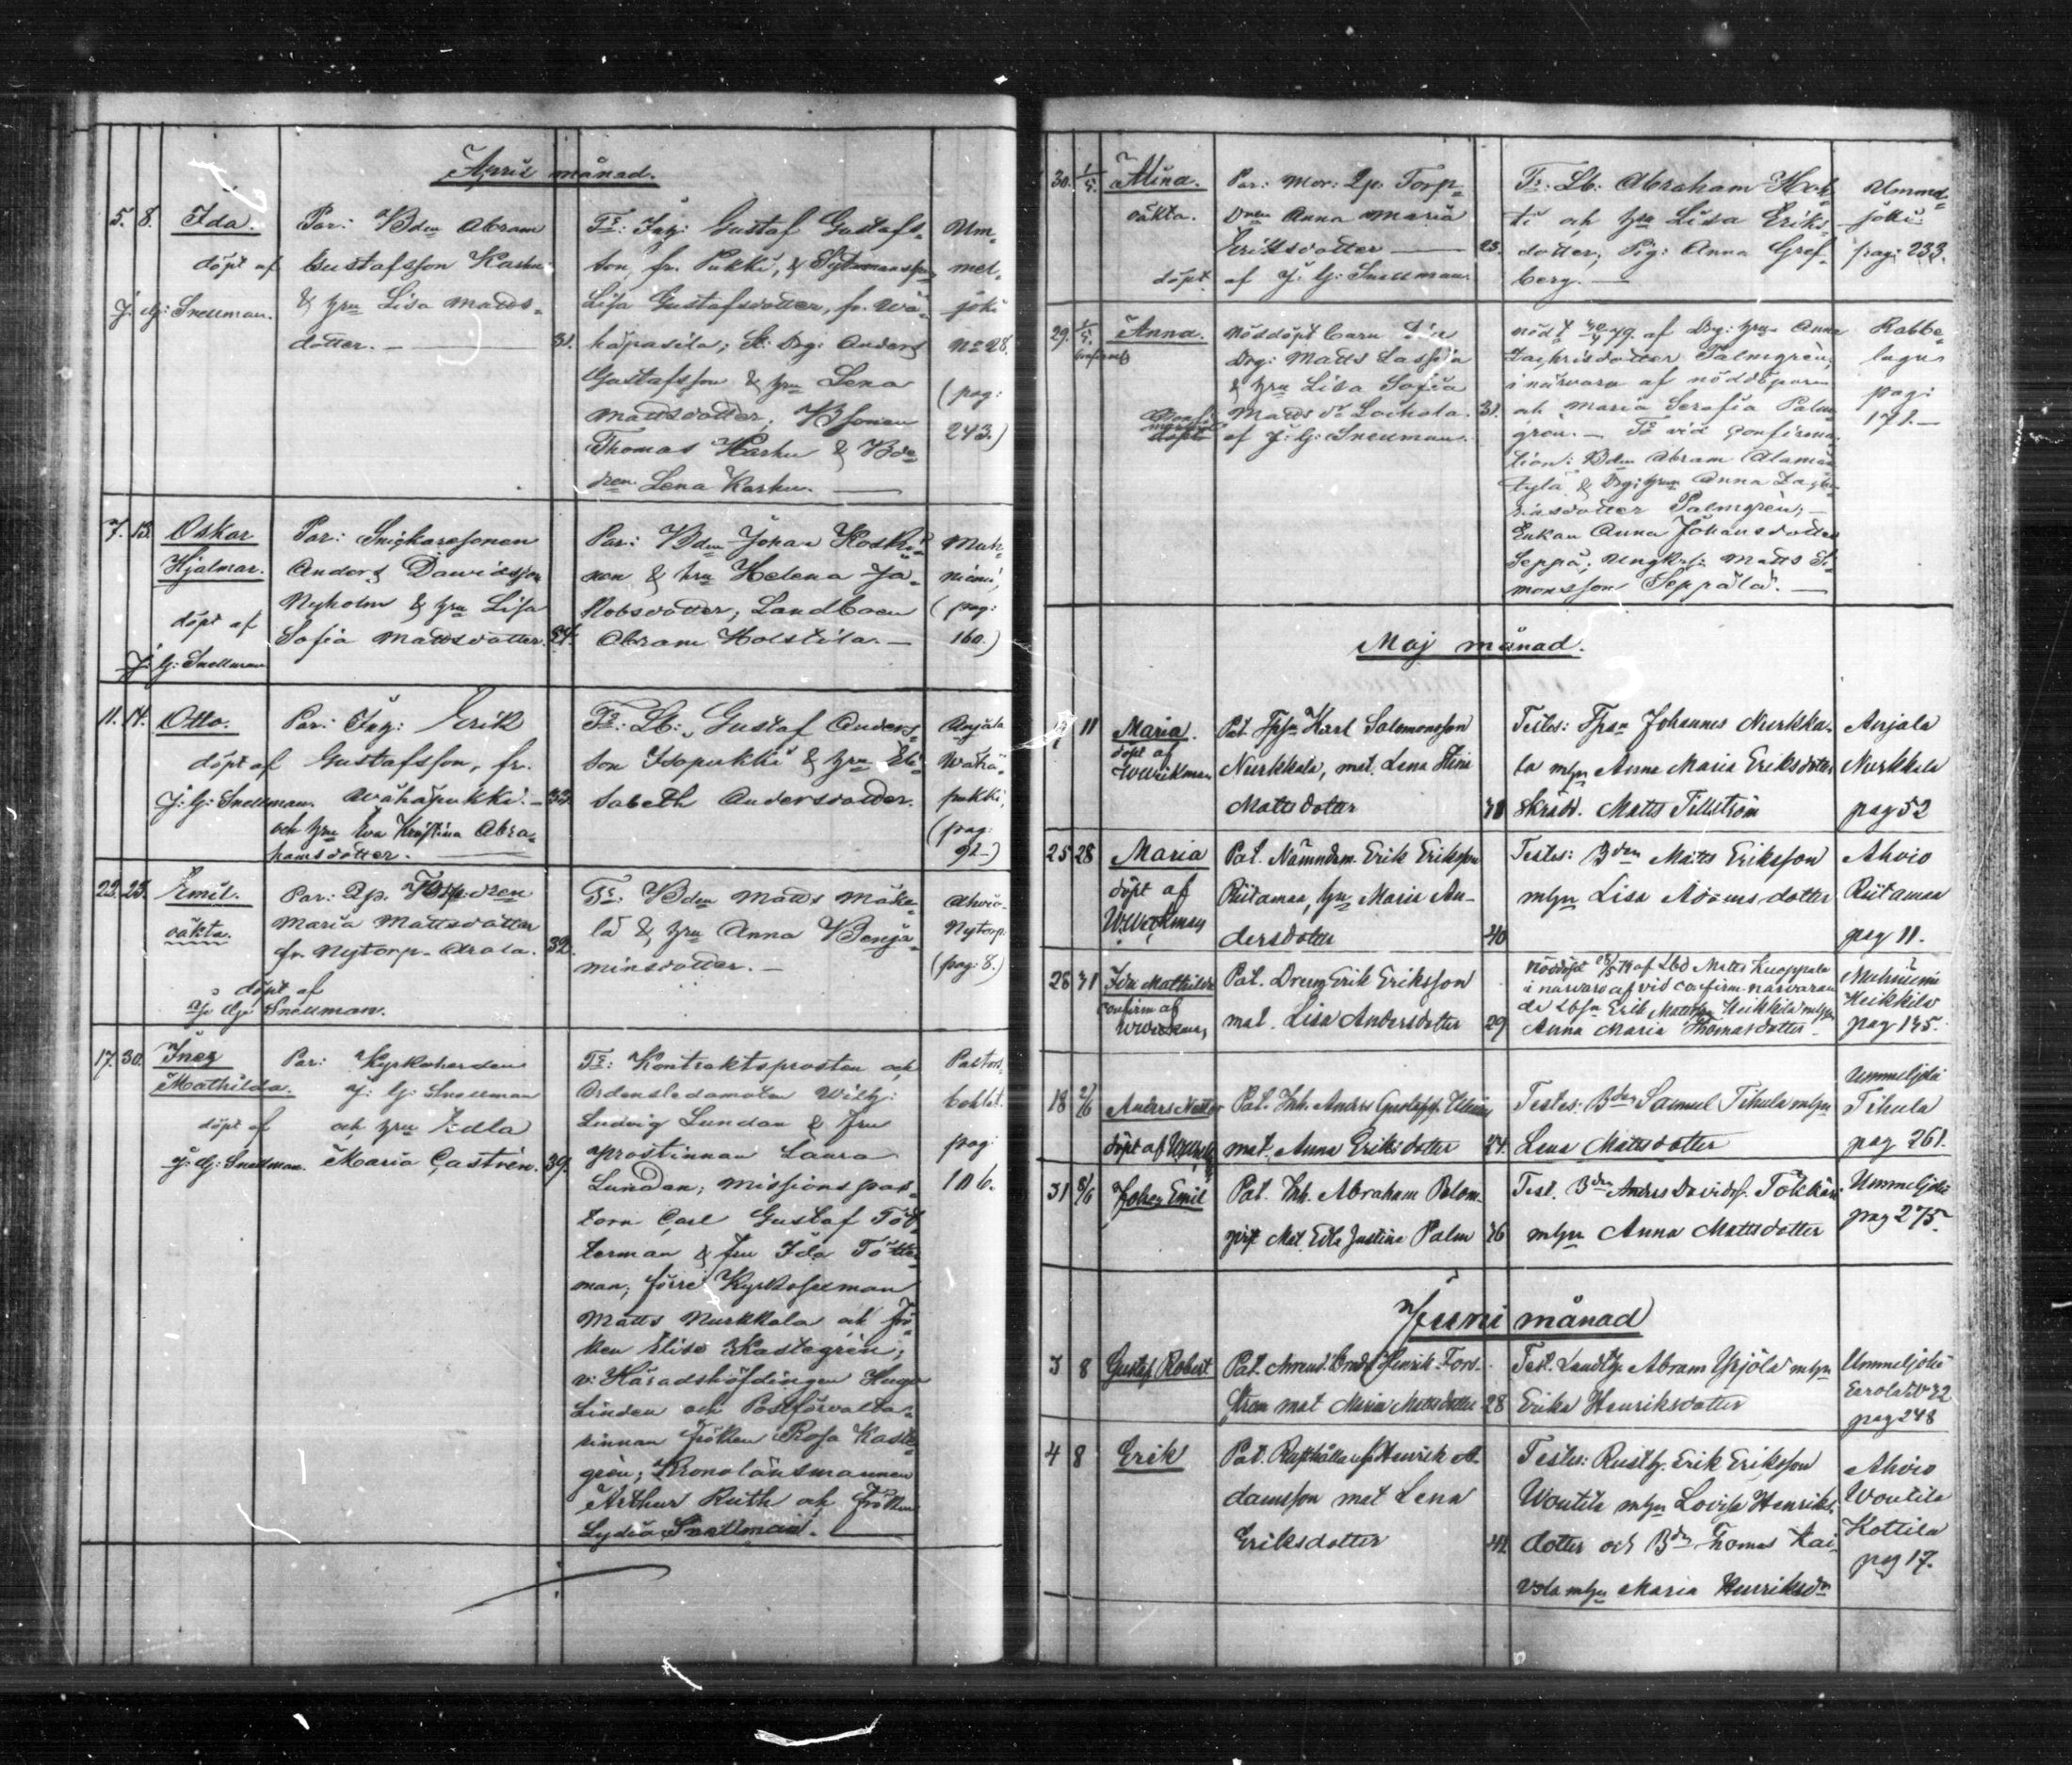 April månad.
5. 8. Ida.
döpt af
J. G: Snellman.
Par: Bden Abram
Gustafsson Karhu
& hru Lisa Matts-
dotter. — 31.
Ts: Ing: Gustaf Gustafs-
son, fr. Pukki, &
Lisa Gustafsdotter, fr. Wä-
häpasila; St. Drg: Anders
Gustafsson & hru Lena
Mattsdotter; Bsonen
Thomas Karhu & Bdo-
ren Lena Karhu. —
Um-
mel-
joki
No 28.
(pag:
243.)
7. 13. Oskar
Hjalmar.
döpt af
J. G: Snellman
Par: Snickaresonen
Anders Davidsson
Nyholm & hru Lisa
Sofia Mattsdotter. 24.
Par: Bden Johan Koski-
nen & hru Helena Ja-
kobsdotter; Landboen
Abram Holstila. —
Muh-
niemi,
(pag:
160.)
11. 14. Otto.
döpt af
J: G: Snellman.
Par: Ing: Erik
Gustafsson, fr.
Wähäpukki. — 33.
och hru Eva Kristina Abra-
hamsdotter. —
Ts: Lb: Gustaf Anders-
son Isopukki & hru Eli-
sabeth Andersdotter.
Anjala
Wähä-
pukki,
(pag:
92.)
22. 25. Emil.
oäkta.
döpt af
J: G: Snellman.
Par: Qp. Torpdren
Maria Mattsdotter
fr. Nytorp-Arola. 32.
Ts: Bden Matts Mäke-
lä & hru Anna Benja-
minsdotter. —
Ahvio-
Nytorp.
(pag: 8.)
17. 30. Inez
Mathilda.
döpt af
J: G: Snellman.
Par: Kyrkoherden
J: G: Snellman
och hru Edla
Maria Castrén. 39.
Ts: Kontraktsprosten och
Ordensledamoten Wilh:
Ludvig Lundan & fru
prostinnan Laura
Lundan; missions pas-
torn Carl Gustaf Töt-
terman & fru Ida Tötter-
man; förre Kyrkosexman
Matts Nurkkala och frö-
ken Elise Kastegrén;
v: Häradshöfdingen Hugo
Linden och Postförvalta-
rinnan fröken Rosa Kaste-
grén; Kronolänsmannen
Arthur Ruth och fröken
Lydia Snellman. —
Pastors-
bohlet.
pag:
106.
30. 1/5. Alina.
oäkta.
döpt
Par: Mor: Qp. Torp-
dren Anna Maria
Eriksdotter — 23.
af J: G: Snellman.
Ts: Lb: Abraham Hok-
ti och hru Lisa Eriks-
dotter; Pig: Anna Gref-
berg. —
Ummel-
joki.
pag: 233.
29. 1/5. Anna.
nöddöpt barn
Drg: Matts Lassila
& hru Lisa Sofia
Matts dr Lochola. 31.
af J: G: Snellman.
nödd 30/4 79. af Drg: hru Anna
Zachrisdotter Palmgrén,
i närvaro af nöddöparen
och Maria Serafia Palm-
gren. — Ts vid Confirma-
tion: Bden Abram Alamän-
tylä & Drg: hrun Anna Zach-
risdotter Palmgrén; —
Enkan Anna Johansdotter
Seppä; Ungk: Matts Si-
monsson Seppälä. —
Rabbe-
lugn
pag:
171. —
Maj månad.
11 Maria.
döpt af
WWirkman
Pat. Tpsn Karl Salomonsson
Nurkkala, mat. Lena Stina
Mattsdotter 38
Testes: Tpsn Johannes Nurkka-
la mhru Anna Maria Eriksdotter
Skrädd. Matts Tillström
Anjala
Nurkkala
pag 52
25 28 Maria
döpt af
Pat. Nämndem. Erik Eriksson
Riitamaa, hru Maria An-
dersdotter 40
Testes: Bden Matts Eriksson
mhru Lisa Adamsdotter
Ahvio
Riitamaa
pag 11.
28 31 Ida Mathilda
confirm af
Pat. Dreng Erik Eriksson
mat. Lisa Andersdotter 29
Nöddöpt 28/5 79 af Lbd Matts Kuoppala
i närvaro af vid confirm. närvaran-
de Lbsn Erik Mattsson Heikkilä mhru
Anna Maria Thomasdotter
Muhniemi
Heikkilä
pag 145.
18 2/6 Anders Nestor
döpt af
Pat. Inh. Anders Gustafss.
mat. Anna Eriksdotter 24.
Testes: Bden Samuel Tihula mhru
Lena Mattsdotter
Ummeljoki
Tihula
pag 261.
31 8/6 Johan Emil
Pat. Inh. Abraham Blom-
qvist Mat. Edla Justina Palm 26
Test. Bden Anders Davidss. Tökkäri
mhru Anna Mattsdotter
Ummeljoki
pag 275.
Juni månad
3 8 Gustaf Robert
Pat. Arend. Henrik Fors-
ström mat Maria Mattsdotter 28
Test. Landth. Abram Yrjölä mhru
Erika Henriksdotter
Ummeljoki
Eerola No 32
pag 248
4 8 Erik
Pat. Rusthållaresn Henrik A-
damsson mat Lena
Eriksdotter 41.
Testes: Rusth. Erik Eriksson
Woutila mhru Lovisa Henriks-
dotter och Bden Thomas Kai-
vola mhru Maria Henriksdr
Ahvio
Woutila
Kottila
pag 17.